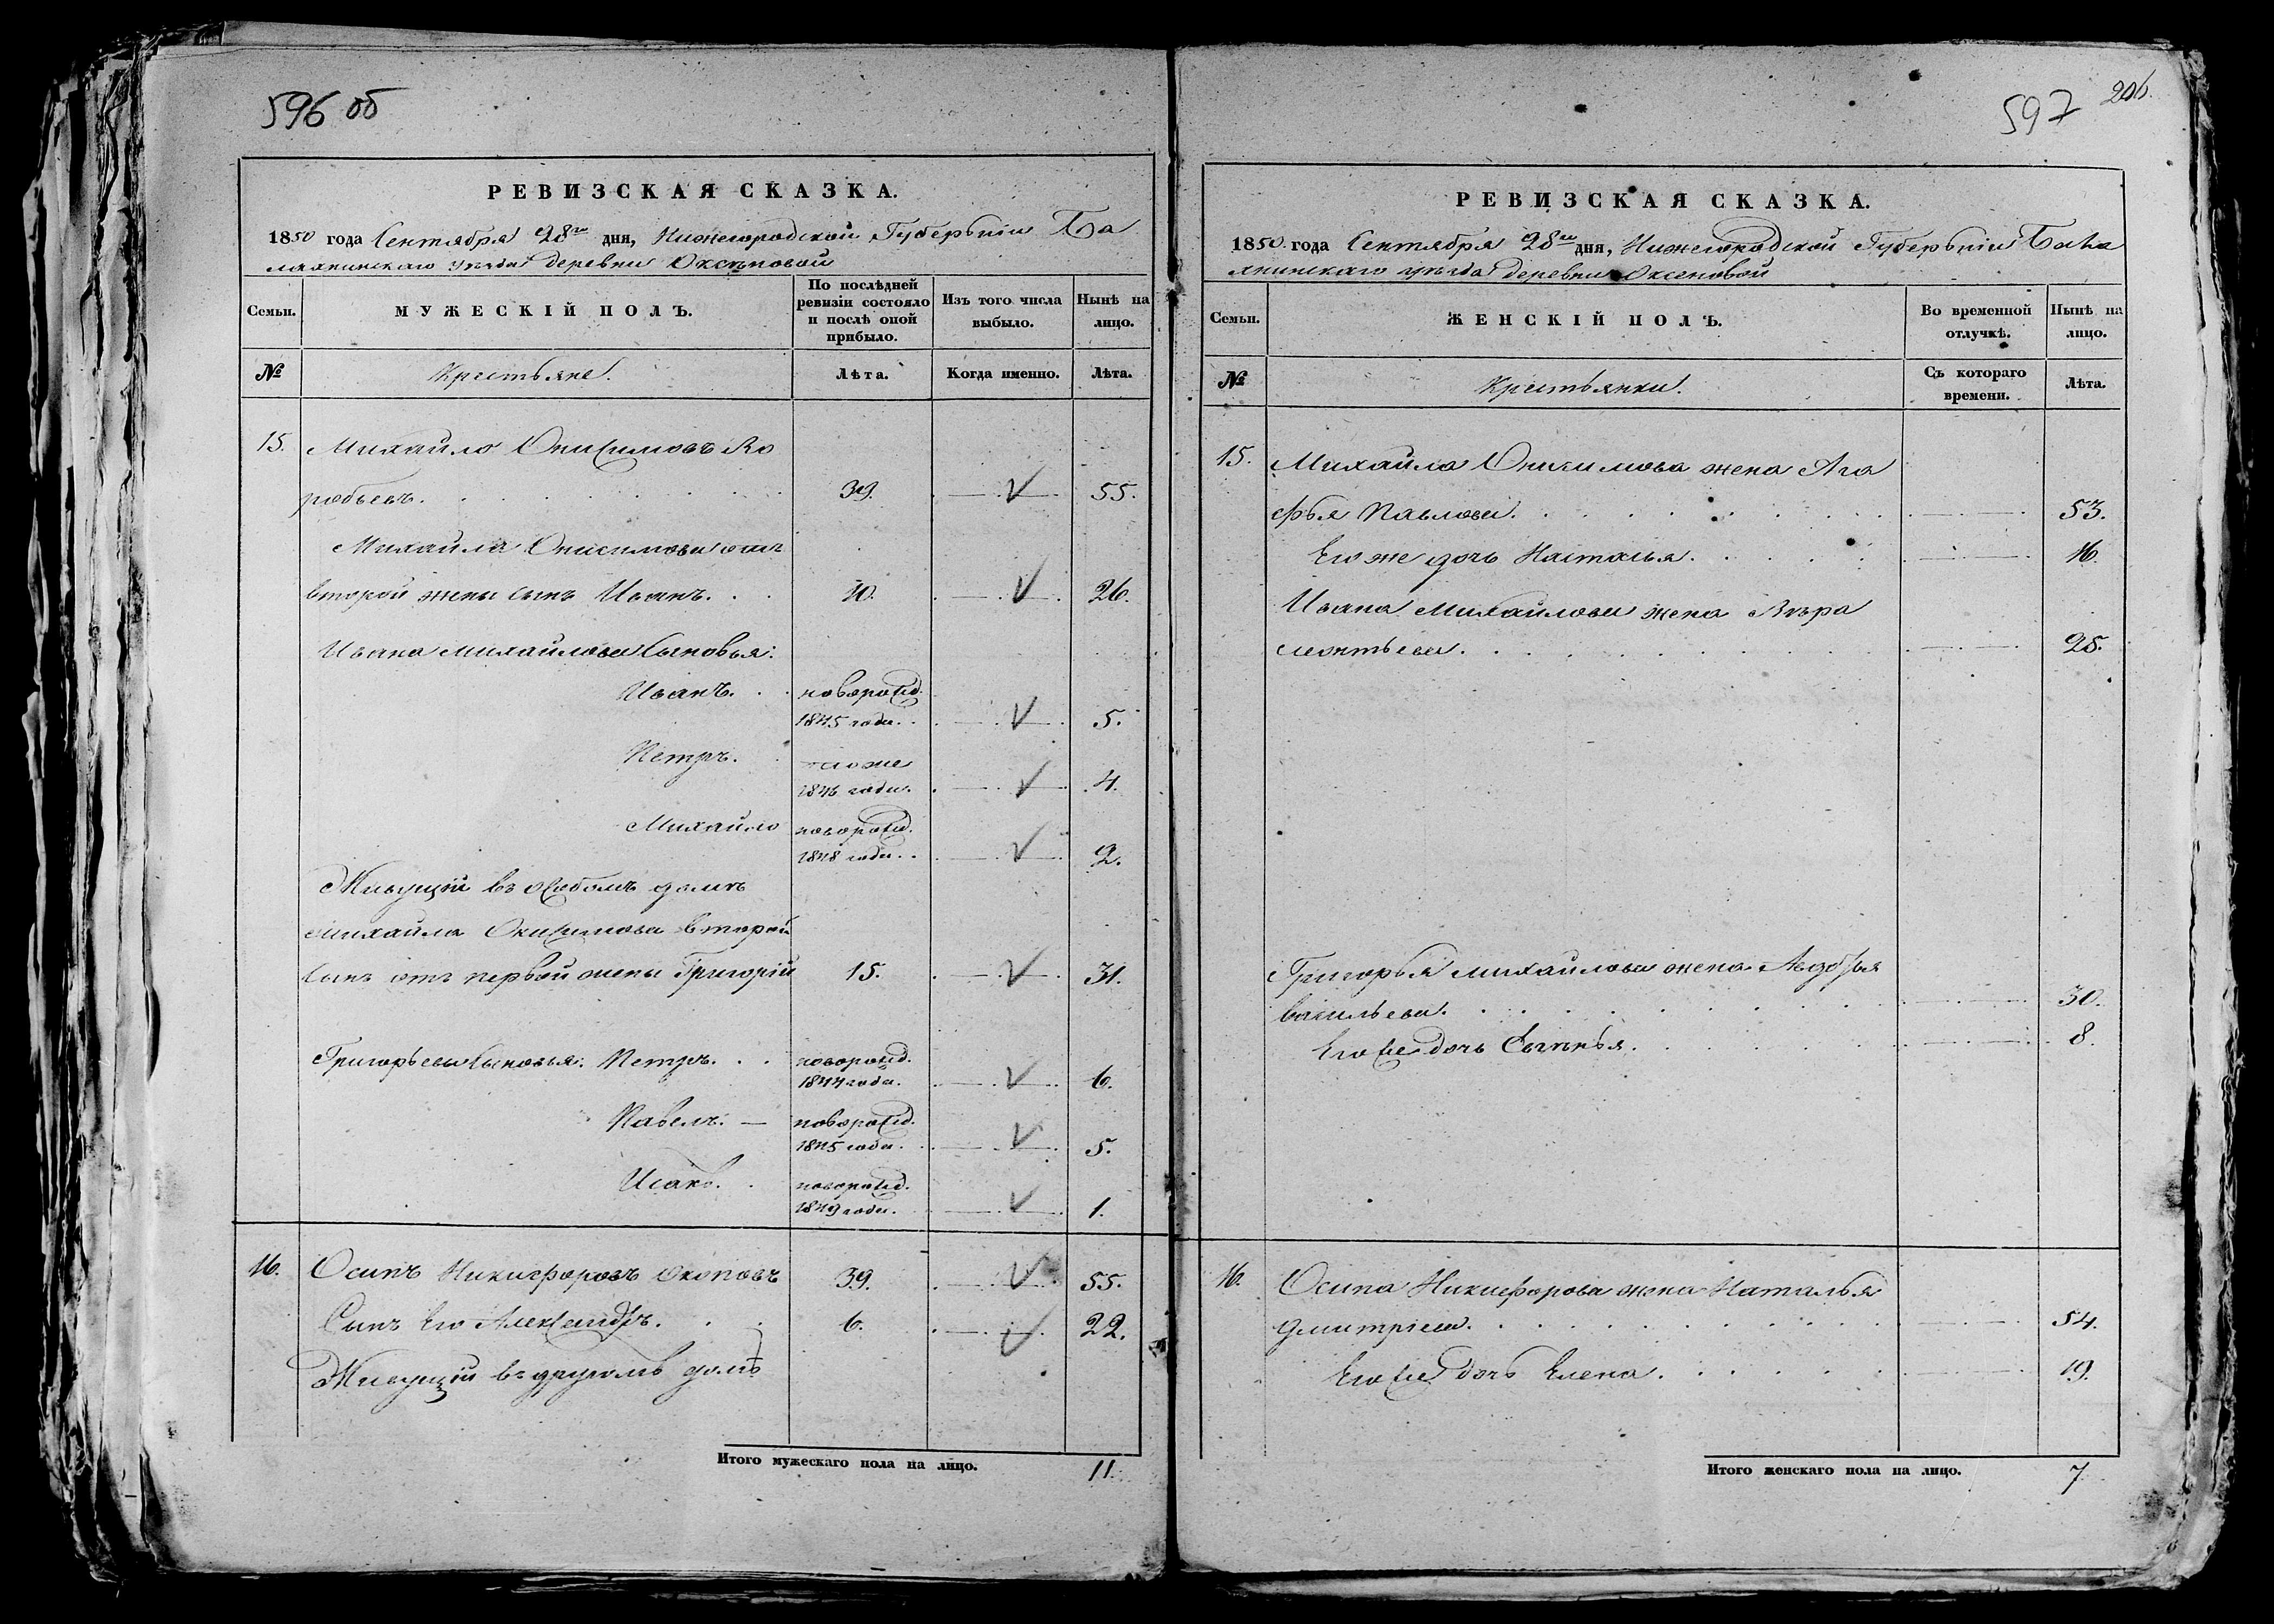 596 об
РЕВИЗСКАЯ СКАЗКА.
1850 года Сентября 28го дня, Нижегородской Губерьніи Ба
лахнинскаго уѣзда деревни Оксеновой
Семьи.
МУЖЕСКІЙ ПОЛЪ.
По послѣдней ревизіи состояло и послѣ оной прибыло.
Изъ того числа выбыло.
Нынѣ на лицо.
№
Крестьяне.
Лѣта.
Когда именно.
Лѣта.
15. Михайло Онисимовъ Во
робьевъ. 39. 55.
Михайла Онисимова отъ
второй жены сынъ Иванъ. 10. 26.
Ивана Михайлова сыновья:
Иванъ. новорожд.
1845 года. 5.
Петръ. тоже
1846 года. 4.
Михайло новорожд.
1848 года. 2.
Живущій въ особомъ домѣ
Михайла Онисимова второй
сынъ отъ первой жены Григорій 15. 31.
Григорьевы сыновья: Петръ. новорожд.
1844 года. 6.
Павелъ. — новорожд.
1845 года. 5.
Исакъ. новорожд.
1849 года. 1.
16. Осипъ Никифоровъ 39. 55.
Сынъ Его Александръ. 6. 22.
Живущій въ другомъ домѣ
Итого мужескаго пола на лицо. 11.
597 206.
РЕВИЗСКАЯ СКАЗКА.
1850 года Сентября 28го дня, Нижегородской Губерьніи Бала
хнинскаго уѣзда деревни Оксеновой
Семьи.
ЖЕНСКІЙ ПОЛЪ.
Во временной отлучкѣ.
Нынѣ на лицо.
№
Крестьянки.
Съ котораго времени.
Лѣта.
15. Михайла Онисимова жена Ага
фья Павлова. 53.
Его же дочь Настасья. 16.
Ивана Михайлова жена Вѣра
Леонтьева. 25.
Григорья Михайлова жена Авдотья
Васильева. 30.
Его же дочь 8.
16. Осипа Никифорова жена Наталья
Дмитріева. 54.
Его же дочь Елена. 19.
Итого женскаго пола на лицо. 7.